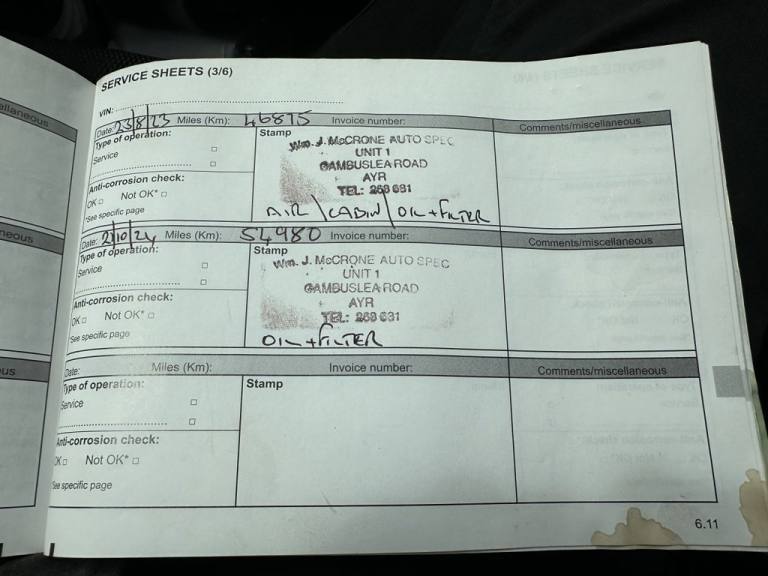 SERVICE SHEETS (3/6)
VIN:
Date: 23/8/23 Miles (Km): 46875 Invoice number: Comments/miscellaneous
Type of operation:
Service □
□
Anti-corrosion check:
OK □ Not OK* □
*See specific page
Stamp
Wm. J. McCRONE AUTO SPEC
UNIT 1
GAMBUSLEA ROAD
AYR
TEL: 268 681
AIR \ CABIN / OIL + FILTER
Date: 21/10/24 Miles (Km): 54980 Invoice number: Comments/miscellaneous
Type of operation:
Service □
□
Anti-corrosion check:
OK □ Not OK* □
*See specific page
Stamp
Wm. J. McCRONE AUTO SPEC
UNIT 1
GAMBUSLEA ROAD
AYR
TEL: 268 681
OIL + FILTER
Date: Miles (Km): Invoice number: Comments/miscellaneous
Type of operation:
Service □
□
Anti-corrosion check:
OK □ Not OK* □
*See specific page
Stamp
6.11